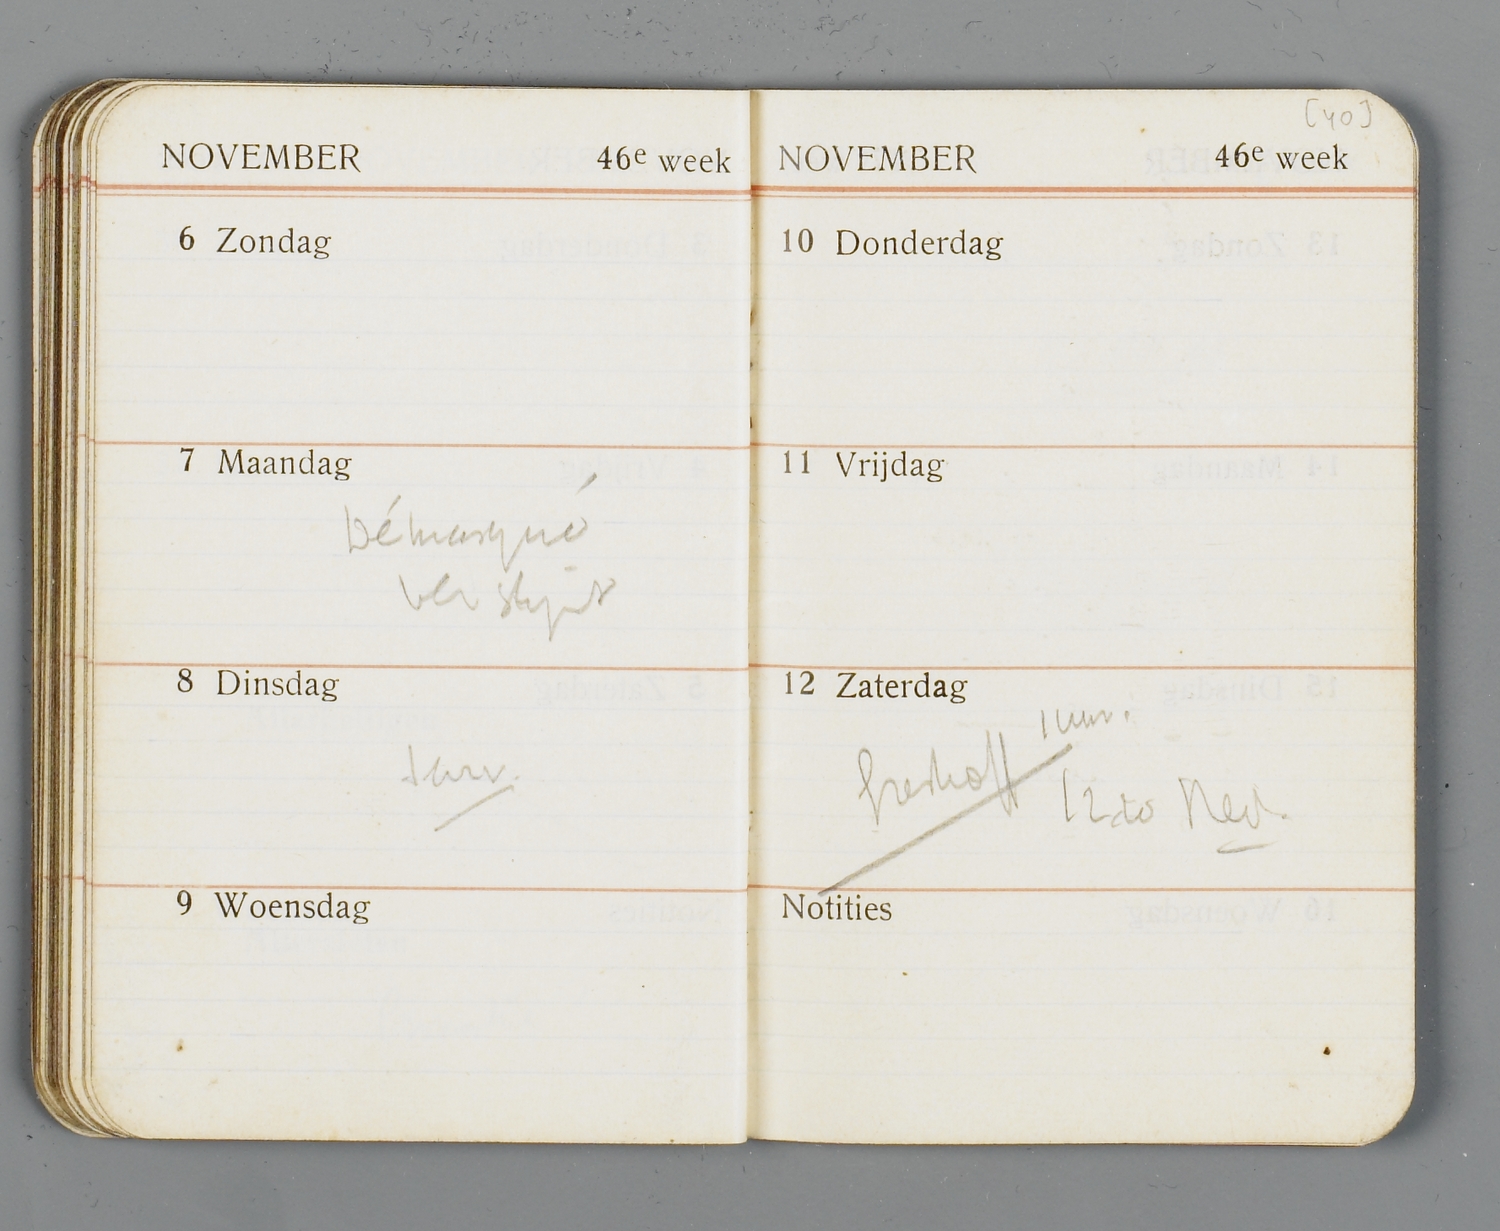 NOVEMBER 46e week
6 Zondag
7 Maandag
Démasqué
8 Dinsdag
9 Woensdag
[40]
NOVEMBER 46e week
10 Donderdag
11 Vrijdag
12 Zaterdag
Greshoff
Notities